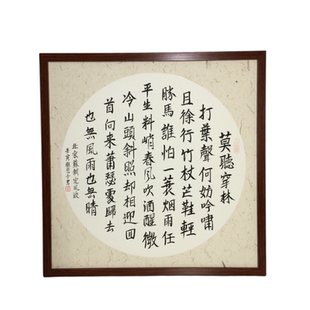 莫聽穿林
打葉聲何妨吟嘯
且徐行竹杖芒鞋輕
勝馬誰怕一蓑烟雨任
平生料峭春風吹酒醒微
冷山頭斜照却相迎回
首向来蕭瑟處歸去
也無風雨也無晴
北宋蘇軾定風波